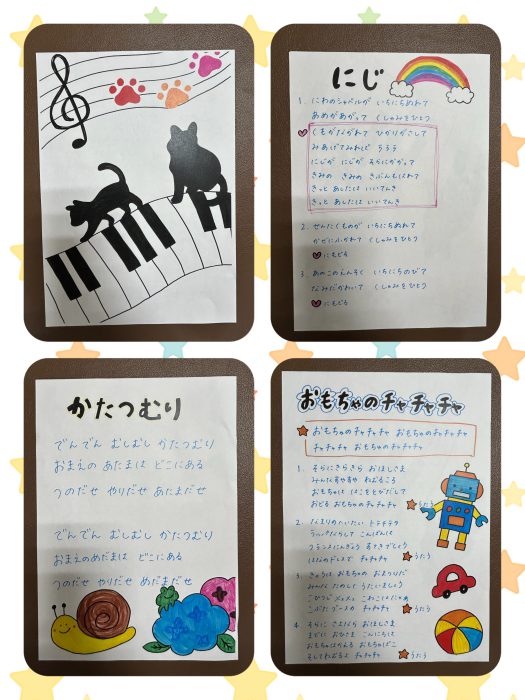 にじ
1. にわのシャベルが いちにちぬれて
あめがあがって くしゃみをひとつ
くもがながれて ひかりがさして
みあげてみれば ラララ
にじが にじが そらにかかって
きみの きみの きぶんもはれて
きっと あしたは いいてんき
きっと あしたは いいてんき
2. せんたくものが いちにちぬれて
かぜにふかれて くしゃみをひとつ
にもどる
3. あのこのえんそく いちにちのびて
なみだかわいて くしゃみをひとつ
にもどる
かたつむり
でんでん むしむし かたつむり
おまえの あたまは どこにある
つのだせ やりだせ あたまだせ
でんでん むしむし かたつむり
おまえのめだまは どこにある
つのだせ やりだせ めだまだせ
おもちゃのチャチャチャ
おもちゃのチャチャチャ おもちゃのチャチャチャ
チャチャチャ おもちゃのチャチャチャ
1. そらにきらきら おほしさま
みんなすやすや ねむるころ
おもちゃは はこをとびだして
おどる おもちゃのチャチャチャ うたう
2. なまりのへいたい トテチテタ
ラッパならして こんばんは
フランスにんぎょう すてきでしょう
はなのドレスで チャチャチャ うたう
3. きょうは おもちゃの おまつりだ
みんな たのしく うたいましょう
こひつじ メェメェ こねこはにゃあ
こぶた ブースカ チャチャチャ うたう
4. そらに さよなら おほしさま
まどに おひさま こんにちは
おもちゃはかえる おもちゃばこ
そしてねむるよ チャチャチャ うたう